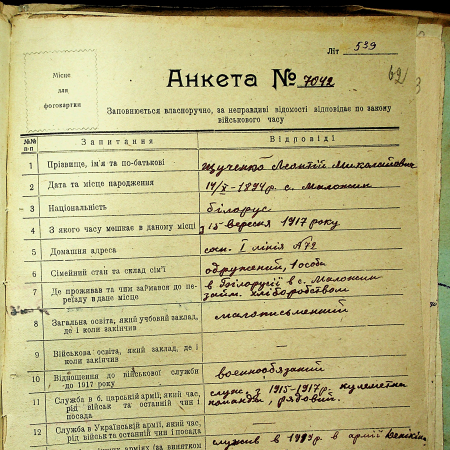 Літ 539
62
Місце
для
фотокартки
Анкета № 7042
Заповнюється власноручно, за неправдиві відомості відповідає по закону
військового часу
№№ п-п Запитання Відповіді
1 Прізвище, ім'я та по-батькові Жученко Леонтій Миколайович
2 Дата та місце народження 14/X-1894 р. с. Маложин
3 Національність білорус
4 З якого часу мешкає в даному місці з 15 вересня 1917 року
5 Домашня адреса I лінія
6 Сімейний стан та склад сім'ї одружений, 1 особа
7 Де проживав та чим займався до пе-
реїзду в дане місце
в Білорусії в с. Маложин
займ. хліборобством
8 Загальна освіта, який учбовий заклад,
де і коли закінчив
малописьменний
9 Військова освіта, який заклад, де і
коли закінчив
—
10 Відношення до військової служби
до 1917 року
военнообязаний
11 Служба в б. царській армії, який час,
рід військ та останній чин і
посада
служ. з 1915-1917 р. кулеметна
команда, рядовий.
12 Служба в Українській армії, який час,
рід військ та останній чин і посада
—
арміях (за винятком
служив в в армії